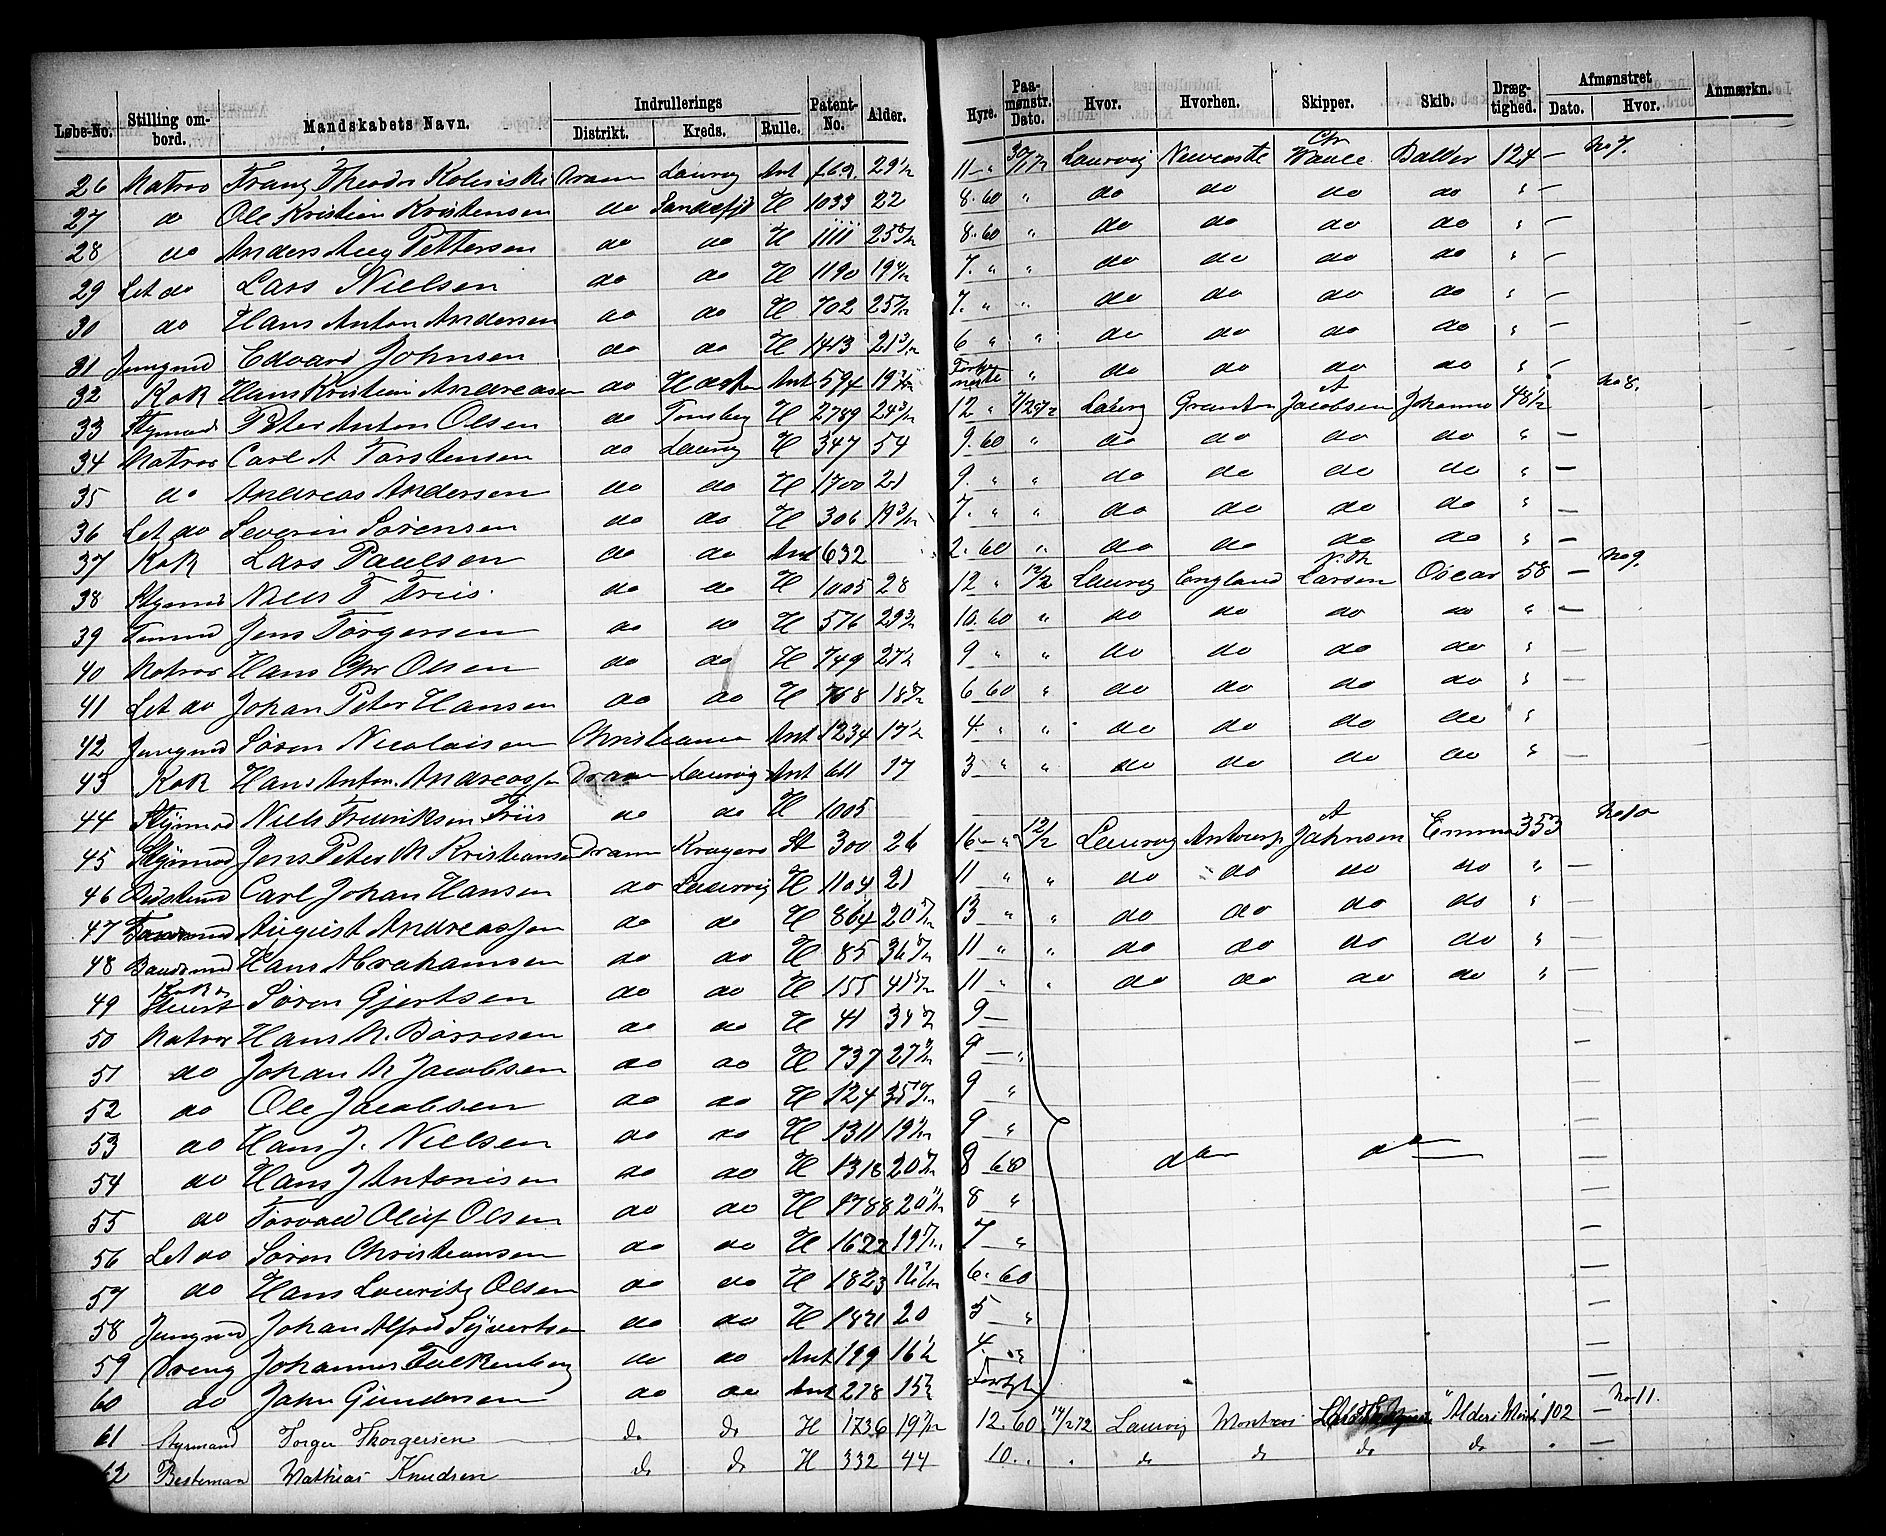 Løbe-No. Stilling ombord. Mandskabets Navn. Indrullerings Distrikt. Kreds. Rulle. Patent-No. Alder. Hyre. Paamønstr. Dato. Hvor. Hvorhen. Skipper. Skib. Drægtighed. Afmønstret Dato. Hvor. Anmærkn.
26 Matros Franz Theodor Dram Laurvig Ant 29 1/2 11 " 30/1 72 Laurvig Newcastle Chr Balder 124 – No 7.
27 do Ole Kristian Kristensen do Sandefjd H 1033 22 8.60 " do do do do " –
28 do Anders Aug Pettersen do do H 1111 8.60 " do do do do " –
29 Let do Lars Nielsen do do H 1190 7. " " do do do do " –
30 do Hans Anton Andersen do do H 702 7. " " do do do do " –
31 Jungmd Edvard Johnsen do do H 1413 21 3/12 6 " " do do do do " –
32 Kok Hans Kristian Andreasen do Ant 594 " do do do do " –
33 Stymnd Peter Anton Olsen do Tønsberg H 2789 12 " Laurvig Granton A Jacobsen Johanna 48 1/2 No 8.
34 Matros Carl A Torstensen do Laurvig H 347 54 9.60 " do do do do " –
35 do Andreas Andersen do do H 1700 21 9. " " do do do do " –
36 Let do Severin Sørensen do do H 306 7. " " do do do do " –
37 Kok Lars Paulsen do do Ant 632 2.60 " do do do do " –
38 Stymnd Niels F Friis. do do H 1005 28 12 " 12/2 Laurvig England Larsen Oscar 58 – No 9.
39 Tømmd Jens Torgersen do do H 576 10.60 " do do do do " –
40 Matros Hans Chr Olsen do do H 749 9 " " do do do do "
41 Let do Johan Peter Hansen do do H 768 6 60 " do do do do " –
42 Jungmd Søren Nicolaisen Christiania Ant 1234 4. " " do do do do "
43 Kok Hans Anton Andreassen Dram Laurvig Ant 611 17 3 " " do do do do " –
44 Stymnd Niels Fredriksen Friis do do H 1005
45 Stymnd Jens Peter M Kristiansen Dram Kragerø St 300 26 16 – " 12/2 Laurvig Antwerp A Johnsen Emma 353 No 10
46 Carl Johan Hansen do Laurvig H 1104 21 11 " " do do do do " –
47 August Andreassen do do H 864 13 " " do do do do " –
48 Baadsmd Hans Abrahamsen do do H 85 11 " " do do do do " –
49 Kok & Stuert Søren Gjertsen do do H 155 11 " " do do do do " –
50 Matros Hans N. do do H 41 9 – –
51 do Johan M Jacobsen do do H 737 9 – " –
52 do Ole Jacobsen do do H 124 9 " –
53 do Hans J. Nielsen do do H 1311 9 " –
54 do Hans J Antonisen do do H 1318 8 60 do do –
55 do Torvald Oluf Olsen do do H 1788 8 " –
56 Let do Søren Christiansen do do H 1622 7 " –
57 do Hans Lauritz Olsen do do H 1823 6.60 –
58 Jungmd Johan Alfred Syvertsen do do H 1821 20 5 " –
59 Dreng Johannes Falkenberg do do Ant 199 16 1/2 4. " –
60 do John Gundersen do do Ant 278 –
61 Styrmand Torger Thorgersen do do H 1736 12.60 14/2 72 Laurvig 102 – No 11.
62 Bestemann Mathias Knudsen do do H 332 44 10. " " do do do do " –